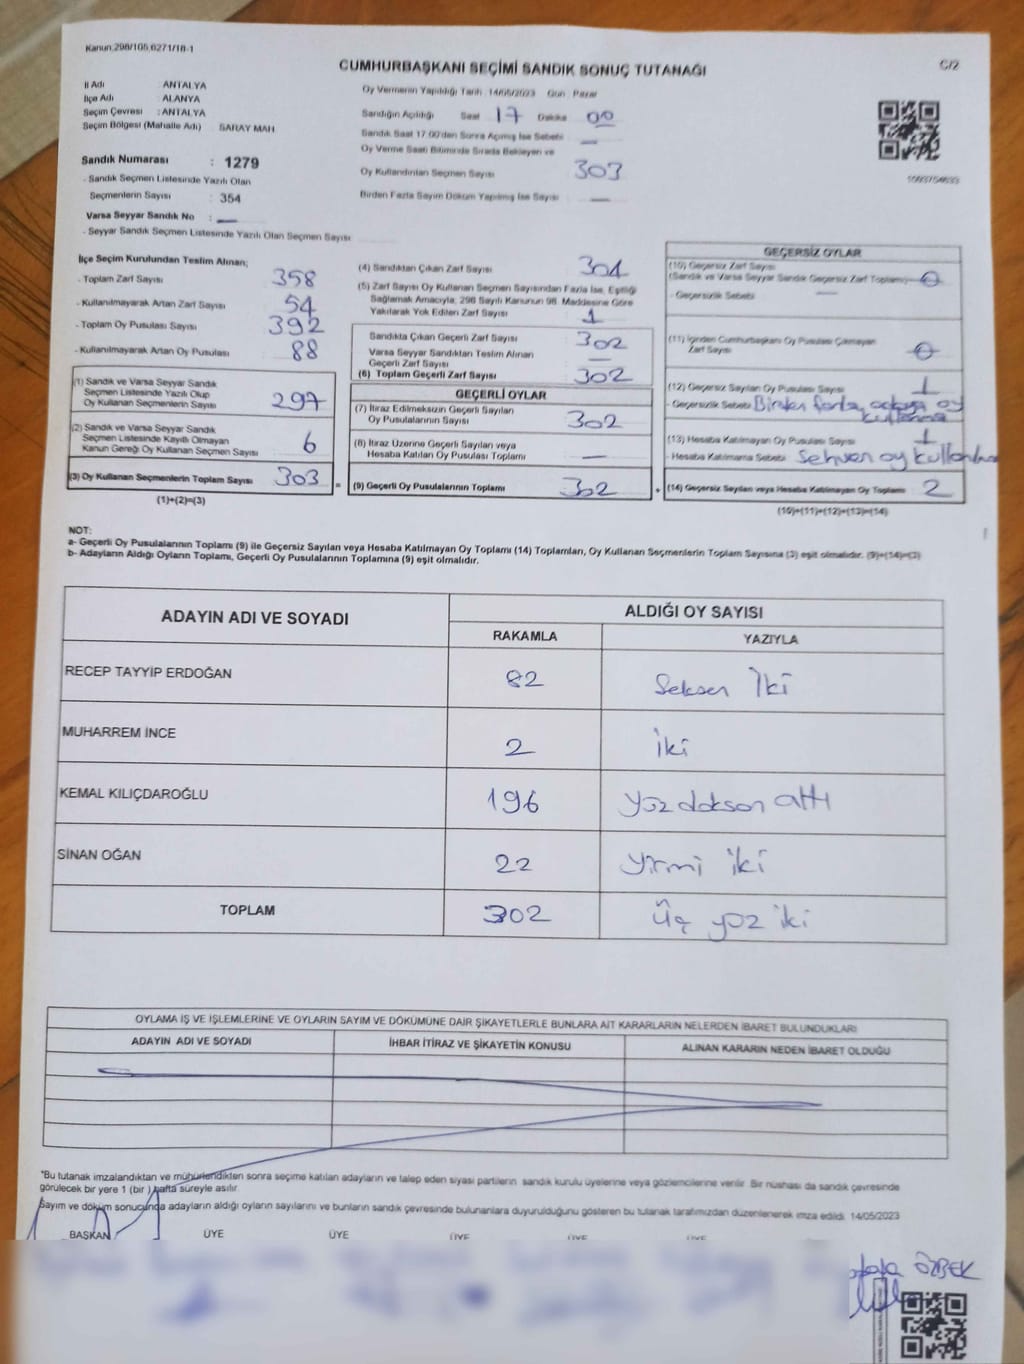 Kanun:298/105,6271/18-1
C/2
CUMHURBAŞKANI SEÇİMİ SANDIK SONUÇ TUTANAĞI
İl Adı : ANTALYA
İlçe Adı : ALANYA
Seçim Çevresi : ANTALYA
Seçim Bölgesi (Mahalle Adı) : SARAY MAH.
Sandık Numarası : 1279
- Sandık Seçmen Listesinde Yazılı Olan
Seçmenlerin Sayısı : 354
Varsa Seyyar Sandık No : —
- Seyyar Sandık Seçmen Listesinde Yazılı Olan Seçmen Sayısı:
Oy Vermenin Yapıldığı Tarih : 14/05/2023 Gün : Pazar
Sandığın Açıldığı Saat 17 Dakika 00
Sandık Saat 17:00'den Sonra Açılmış İse Sebebi : —
Oy Verme Saati Bitiminde Sırada Bekleyen ve
Oy Kullandırılan Seçmen Sayısı 303
Birden Fazla Sayım Döküm Yapılmış İse Sayısı —
İlçe Seçim Kurulundan Teslim Alınan;
- Toplam Zarf Sayısı 358
- Kullanılmayarak Artan Zarf Sayısı 54
- Toplam Oy Pusulası Sayısı 392
- Kullanılmayarak Artan Oy Pusulası 88
(1) Sandık ve Varsa Seyyar Sandık
Seçmen Listesinde Yazılı Olup
Oy Kullanan Seçmenlerin Sayısı 297
(2) Sandık ve Varsa Seyyar Sandık
Seçmen Listesinde Kayıtlı Olmayan
Kanun Gereği Oy Kullanan Seçmen Sayısı 6
(3) Oy Kullanan Seçmenlerin Toplam Sayısı 303 =
(1)+(2)=(3)
(4) Sandıktan Çıkan Zarf Sayısı 304
(5) Zarf Sayısı Oy Kullanan Seçmen Sayısından Fazla İse, Eşitliği
Sağlamak Amacıyla, 298 Sayılı Kanunun 98. Maddesine Göre
Yakılarak Yok Edilen Zarf Sayısı 1
Sandıkta Çıkan Geçerli Zarf Sayısı 302
Varsa Seyyar Sandıktan Teslim Alınan
Geçerli Zarf Sayısı —
(6) Toplam Geçerli Zarf Sayısı 302
GEÇERLİ OYLAR
(7) İtiraz Edilmeksizin Geçerli Sayılan
Oy Pusulalarının Sayısı 302
(8) İtiraz Üzerine Geçerli Sayılan veya
Hesaba Katılan Oy Pusulası Toplamı —
(9) Geçerli Oy Pusulalarının Toplamı 302 +
GEÇERSİZ OYLAR
(10) Geçersiz Zarf Sayısı
(Sandık ve Varsa Seyyar Sandık Geçersiz Zarf Toplamı) 0
- Geçersizlik Sebebi : —
(11) İçinden Cumhurbaşkanı Oy Pusulası Çıkmayan
Zarf Sayısı 0
(12) Geçersiz Sayılan Oy Pusulası Sayısı 1
- Geçersizlik Sebebi Birden fazla adaya oy
kullanma
(13) Hesaba Katılmayan Oy Pusulası Sayısı 1
- Hesaba Katılmama Sebebi Sehven oy kullanma
(14) Geçersiz Sayılan veya Hesaba Katılmayan Oy Toplamı 2
(10)+(11)+(12)+(13)=(14)
NOT:
a- Geçerli Oy Pusulalarının Toplamı (9) ile Geçersiz Sayılan veya Hesaba Katılmayan Oy Toplamı (14) Toplamları, Oy Kullanan Seçmenlerin Toplam Sayısına (3) eşit olmalıdır. (9)+(14)=(3)
b- Adayların Aldığı Oyların Toplamı, Geçerli Oy Pusulalarının Toplamına (9) eşit olmalıdır.
ADAYIN ADI VE SOYADI
ALDIĞI OY SAYISI
RAKAMLA YAZIYLA
RECEP TAYYİP ERDOĞAN 82 Seksen İki
MUHARREM İNCE 2 İki
KEMAL KILIÇDAROĞLU 196 Yüz doksan altı
SİNAN OĞAN 22 Yirmi iki
TOPLAM 302 Üç yüz iki
OYLAMA İŞ VE İŞLEMLERİNE VE OYLARIN SAYIM VE DÖKÜMÜNE DAİR ŞİKAYETLERLE BUNLARA AİT KARARLARIN NELERDEN İBARET BULUNDUKLARI
ADAYIN ADI VE SOYADI İHBAR İTİRAZ VE ŞİKAYETİN KONUSU ALINAN KARARIN NEDEN İBARET OLDUĞU
*Bu tutanak imzalandıktan ve mühürlendikten sonra seçime katılan adayların ve talep eden siyasi partilerin sandık kurulu üyelerine veya gözlemcilerine verilir. Bir nüshası da sandık çevresinde
görülecek bir yere 1 (bir ) hafta süreyle asılır.
Sayım ve döküm sonucunda adayların aldığı oyların sayılarını ve bunların sandık çevresinde bulunanlara duyurulduğunu gösteren bu tutanak tarafımızdan düzenlenerek imza edildi. 14/05/2023
BAŞKAN ÜYE ÜYE ÜYE ÜYE ÜYE
ÖZBEK